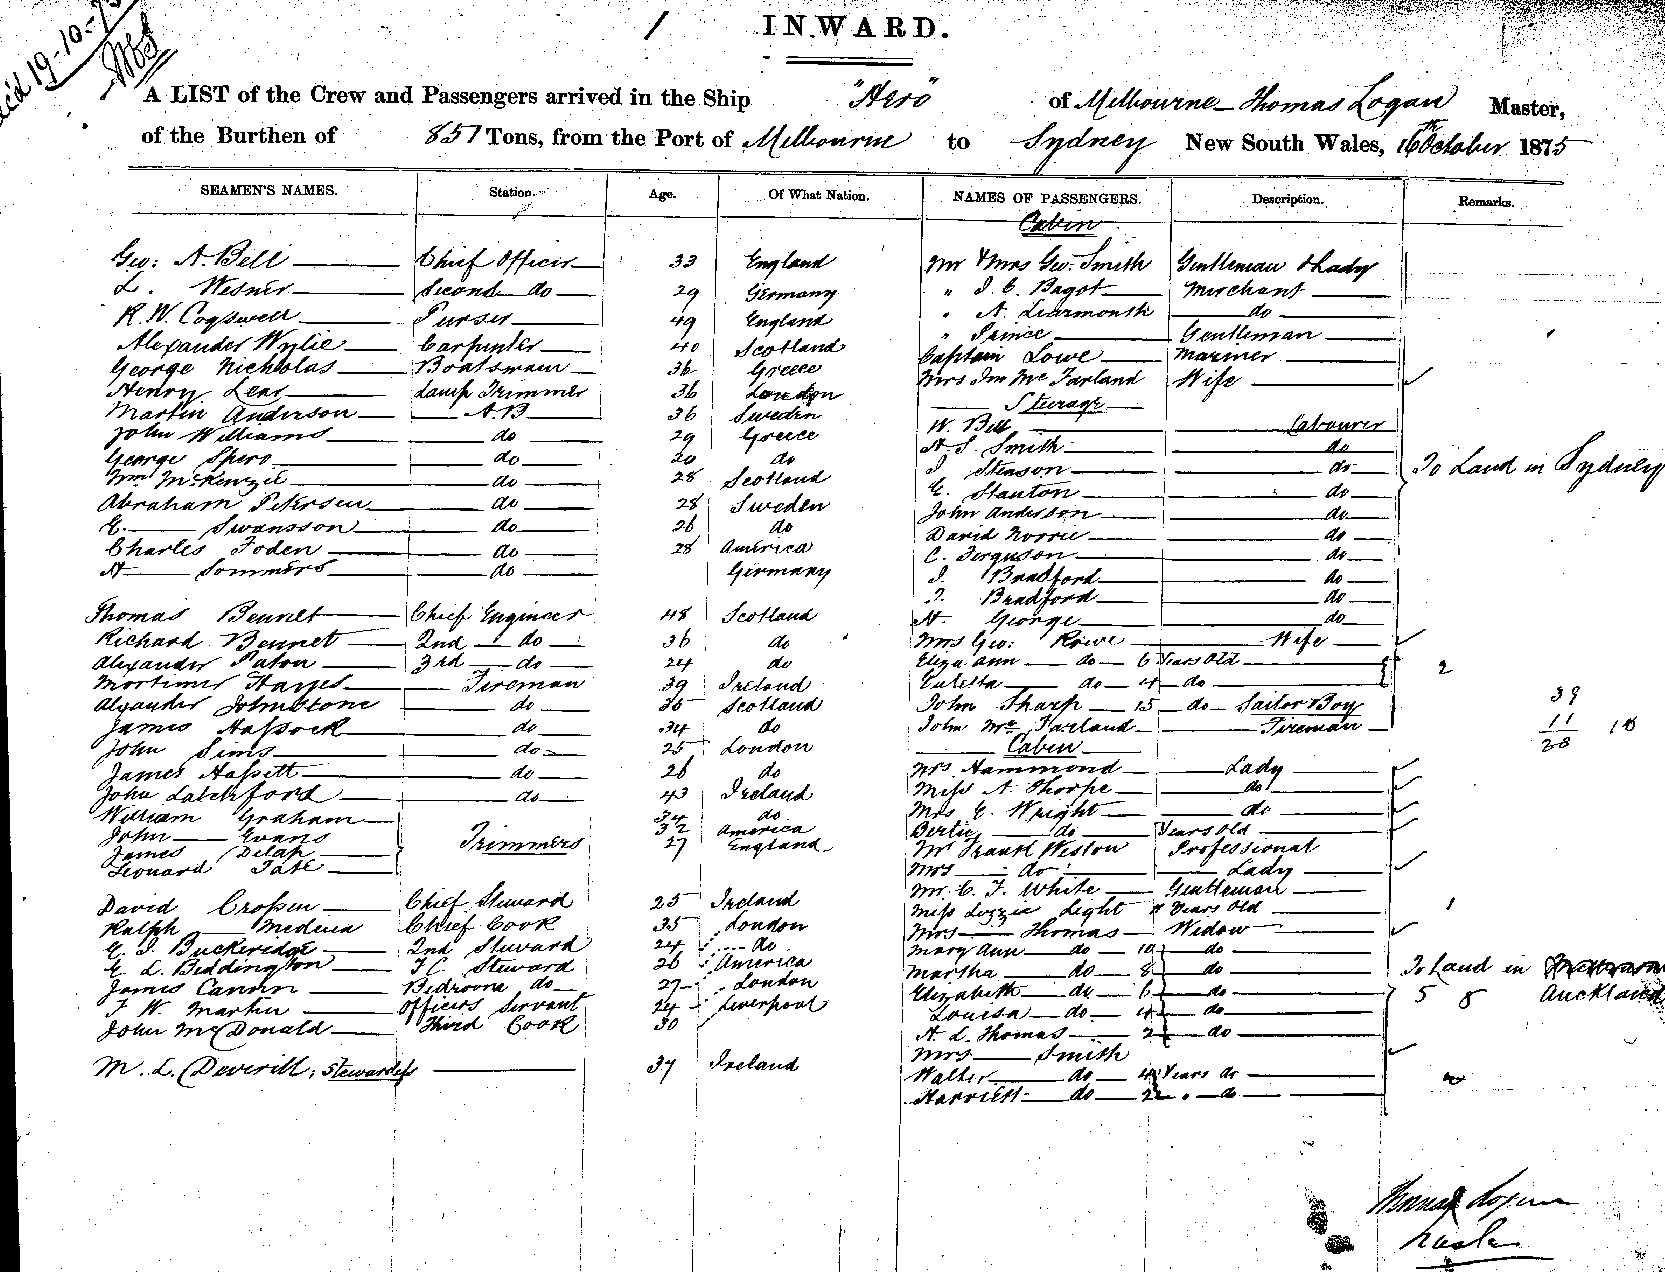 Rec'd 19-10-75
1 INWARD.
A LIST of the Crew and Passengers arrived in the Ship "Hero" of Melbourne Thomas Logan Master,
of the Burthen of 857 Tons, from the Port of Melbourne to Sydney New South Wales, 16th October 1875
SEAMEN'S NAMES. Station. Age. Of What Nation. NAMES OF PASSENGERS. Description. Remarks.
Cabin
Geo: A. Bell Chief Officer 33 England Mr & Mrs Geo. Smith Gentleman & Lady
L. Wesner Second do 29 Germany " J. C. Bagot Merchant
R. W. Cogswell Purser 49 England " A. Learmonth do
Alexander Wylie Carpenter 40 Scotland " Prince Gentleman
George Nicholas Boatswain 36 Greece Captain Lowe Mariner
Henry Lear Lamp Trimmer 36 London Mrs Jno McFarland Wife
Martin Anderson A.B 36 Sweden Steerage
John Williams do 29 Greece W. Bell Labourer
George Spero do 20 do H. S. Smith do
Wm McKenzie do 28 Scotland J. Steason do To Land in Sydney
Abraham Petersen do 28 Sweden E. Stanton do
E. Swansson do 26 do John Anderson do
Charles Foden do 28 America David Norrie do
H Sommers do Germany C. Ferguson do
J. Bradford do
J. Bradford do
Thomas Bennet Chief Engineer 48 Scotland H. George do
Richard Bennet 2nd do 36 do Mrs Geo: Rowe Wife
Alexander Paton 3rd do 24 do Eliza Ann do 6 Years Old 2
Mortimer Hayes Fireman 39 Ireland do 4 do
Alexander Johnstone do 36 Scotland John Sharp 15 do Sailor Boy 39
James Hassock do 34 do John McFarland Fireman 11
John Sims do 25 London Cabin 28 18
James Hassett do 26 do Mrs Hammond Lady
John Latchford do 43 Ireland Miss A. Thorpe do
William Graham 34 do Mrs E. Wright do
John Evans Trimmers 32 America Bertie do Years Old
James Delap 27 England Mr Frank Weston Professional
Leonard Tate Mrs do Lady
Mr. C. F. White Gentleman
David Crossen Chief Steward 25 Ireland Miss Lizzie Light Years Old 1
Ralph Medina Chief Cook 35 London Mrs Thomas Widow
E. J. Buckeridge 2nd Steward 24 do Mary Ann do 10 do
E L. Biddington F.C. Steward 26 America Martha do 8 do To Land in
James Cannon Bedroom do 27 London Elizabeth do 6 do 5 8 Auckland
F. W. Martin Officers Servant 24 Liverpool Louisa do 4 do
John McDonald Third Cook 30 A. L. Thomas 2 do
Mrs Smith
M. L. Deverill, Stewardess 37 Ireland Walter do 4 Years do
Harriett do 2 " do
Thomas Logan
Master